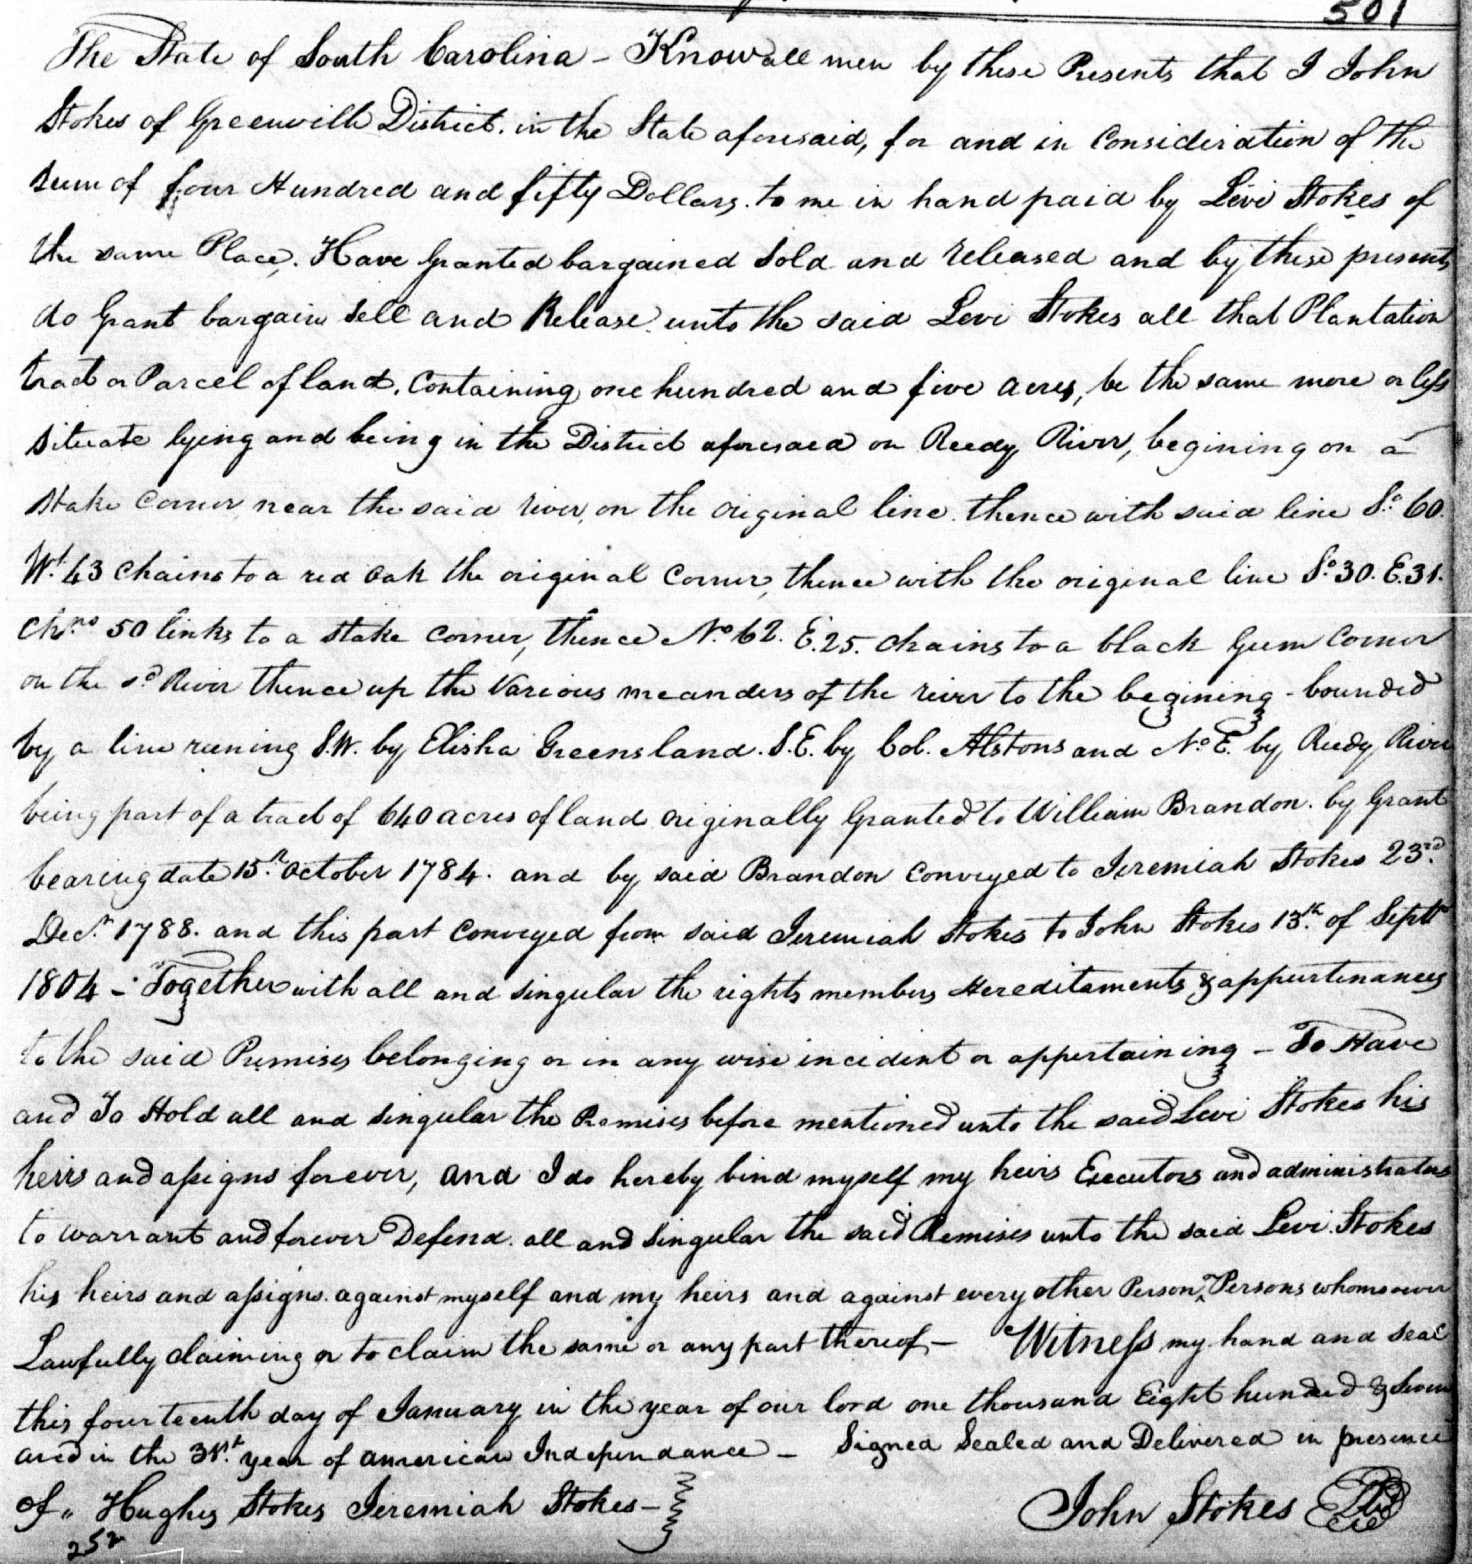 501
The State of South Carolina - Know all men by these Presents that I John
Stokes of Greenville District. in the State aforesaid, for and in Consideration of the
Sum of four Hundred and fifty Dollars. to me in hand paid by Levi Stokes of
the same Place. Have Granted bargained Sold and released and by these presents
do Grant bargain Sell and Release. unto the said Levi Stokes all that Plantation
tract or Parcel of land. Containing one hundred and five acres, be the same more or less
Situate lying and being in the District aforesaid on Reedy River, begining on a
Stake Corner near the said river, on the original line. thence with said line So. 60.
Wt. 43 Chains to a red Oak the original Corner, thence with the original line So. 30. E. 31.
Chns. 50 links to a Stake Corner, thence No. 62. E. 25. Chains to a black Gum Corner
on the sd. River thence up the Various meanders of the river to the begining - bounded
by a line runing S.W. by Elisha Greensland. S.E. by Col. Alstons and No. E. by Reedy River
being part of a tract of 640 acres of land originally Granted to William Brandon. by Grant
bearing date 15th. October 1784. and by said Brandon Conveyed to Jeremiah Stokes 23rd.
Decr. 1788. and this part Conveyed from said Jeremiah Stokes to John Stokes 13th. of Septr
1804 - Together with all and singular the rights members Hereditaments & appurtenances
to the said Premises belonging or in any wise incident or appertaining - To Have
and To Hold all and singular the Premises before mentioned unto the said Levi Stokes his
heirs and assigns forever, and I do hereby bind myself my heirs Executors and administrators
to warrant and forever Defend. all and Singular the said Premises unto the said Levi Stokes
his heirs and assigns. against myself and my heirs and against every other Person, Persons whomsoever
Lawfully claiming or to claim the same or any part thereof - Witness my hand and seal
this fourteenth day of January in the year of our lord one thousand Eight hundred & Seven
and in the 31st. year of american Independance - Signed Sealed and Delivered in presence
of " Hughes Stokes Jeremiah Stokes - John Stokes
252